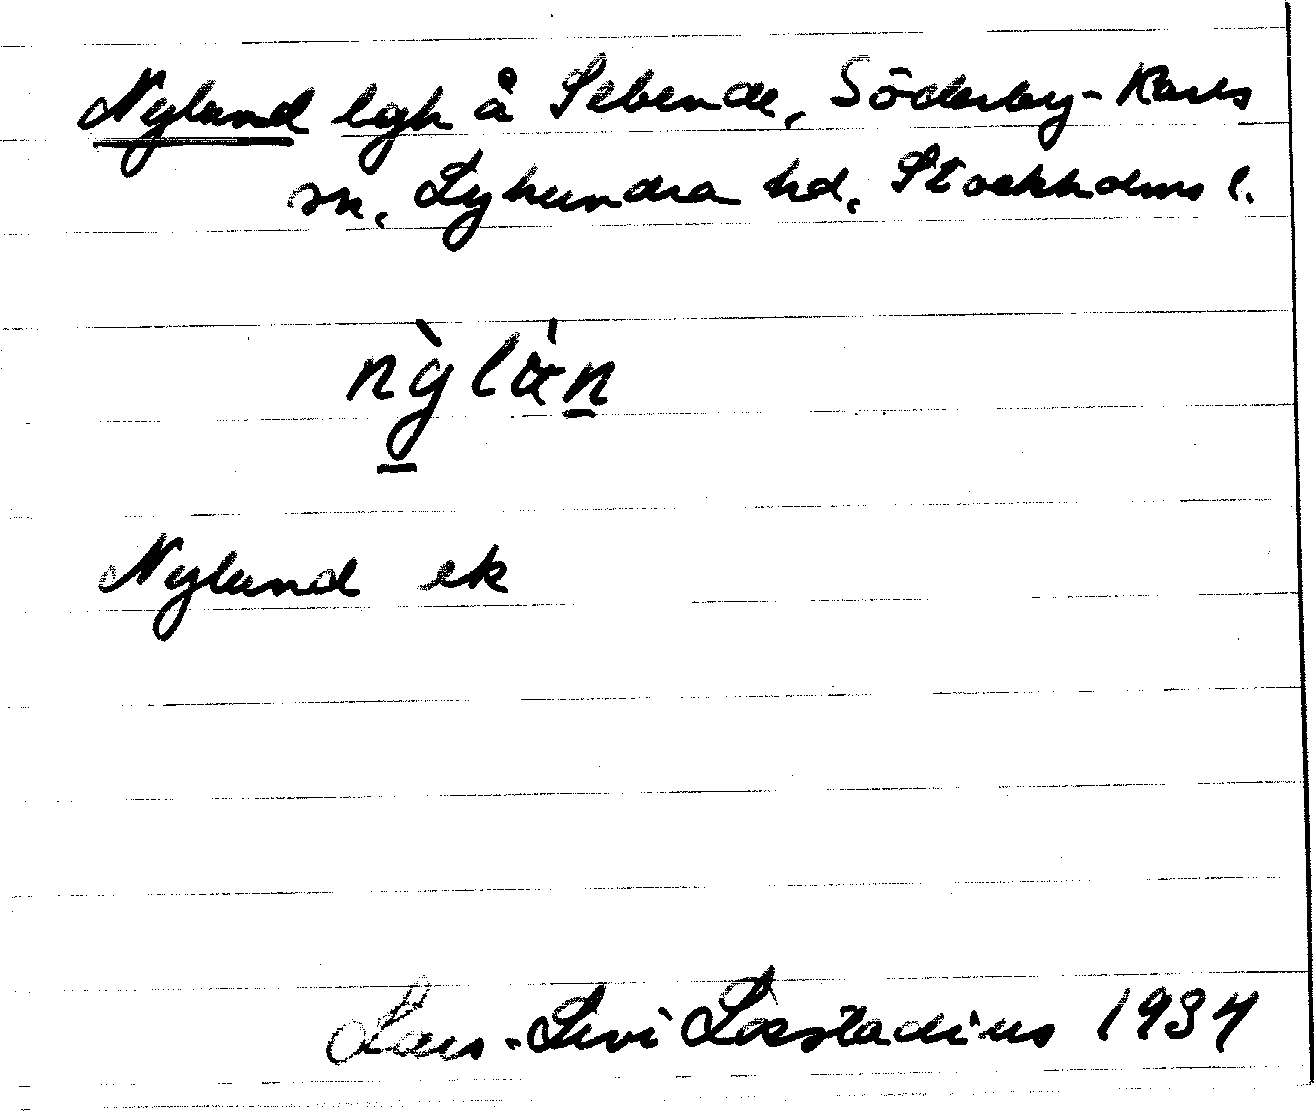 Nyland lgh å Sebende, Söderby-Karls
sn, Lyhundra hd, Stockholms l.
nỳlàn
Nyland ek
Lars-Levi Læstadius 1934